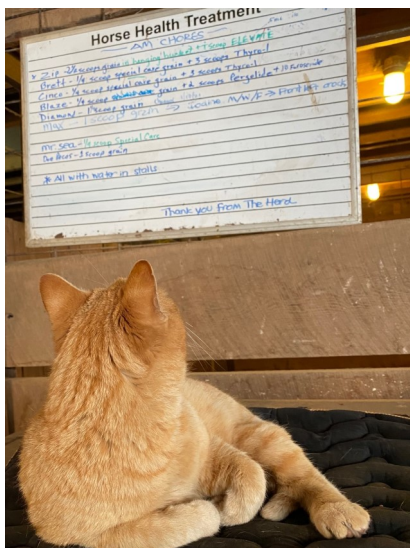 Horse Health Treatment
AM CHORES
Zip - 1/2 scoops grain hanging bucket + 1 scoop ELEVATE
Brett - 1/4 scoop special care grain + 3 scoops Thyroid
Cinco - 1/4 scoop special care grain + 3 scoops Thyroid
Blaze - 1/4 scoop grain + 2 scoops Pergolide +
Diamond - 1 scoop grain
Max 1 scoop grain → Ioane M/W/F →
Mr. Sea - 1/2 scoop Special Care
- 1 scoop grain
* All with water in stalls
Thank you from The Herd